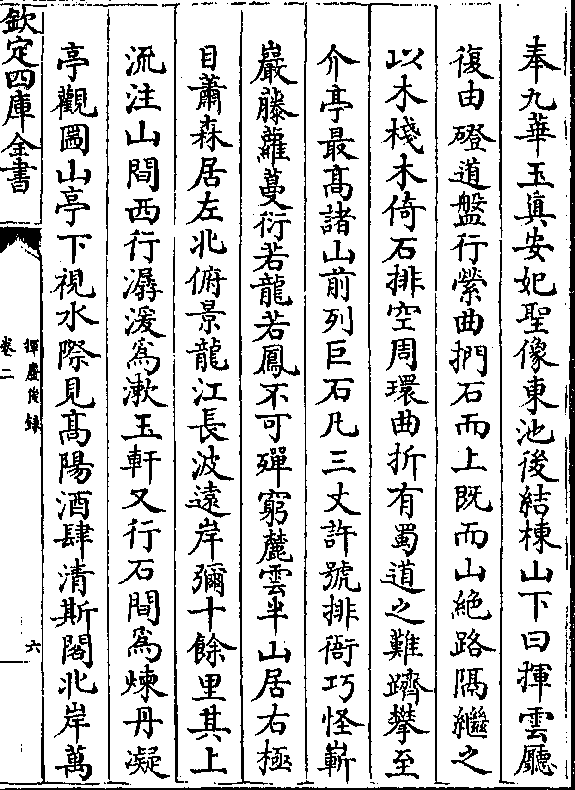 奉九華玉真安妃聖像東池後結棟山下曰揮雲廳
復由磴道盤行縈曲捫石而上既而山絶路隔繼之
以木棧木倚石排空周環曲折有蜀道之難躋攀至
介亭最髙諸山前列巨石凡三丈許號排衙巧怪嶄
巖藤蘿蔓衍若龍若鳳不可殫窮麓雲半山居右極
目蕭森居左北俯景龍江長波逺岸彌十餘里其上
流注山間西行潺湲為漱玉軒又行石間為煉丹凝
亭觀圌山亭下視水際見髙陽酒肆清斯閣北岸萬
欽定四庫全書
揮麈後録
卷二
六